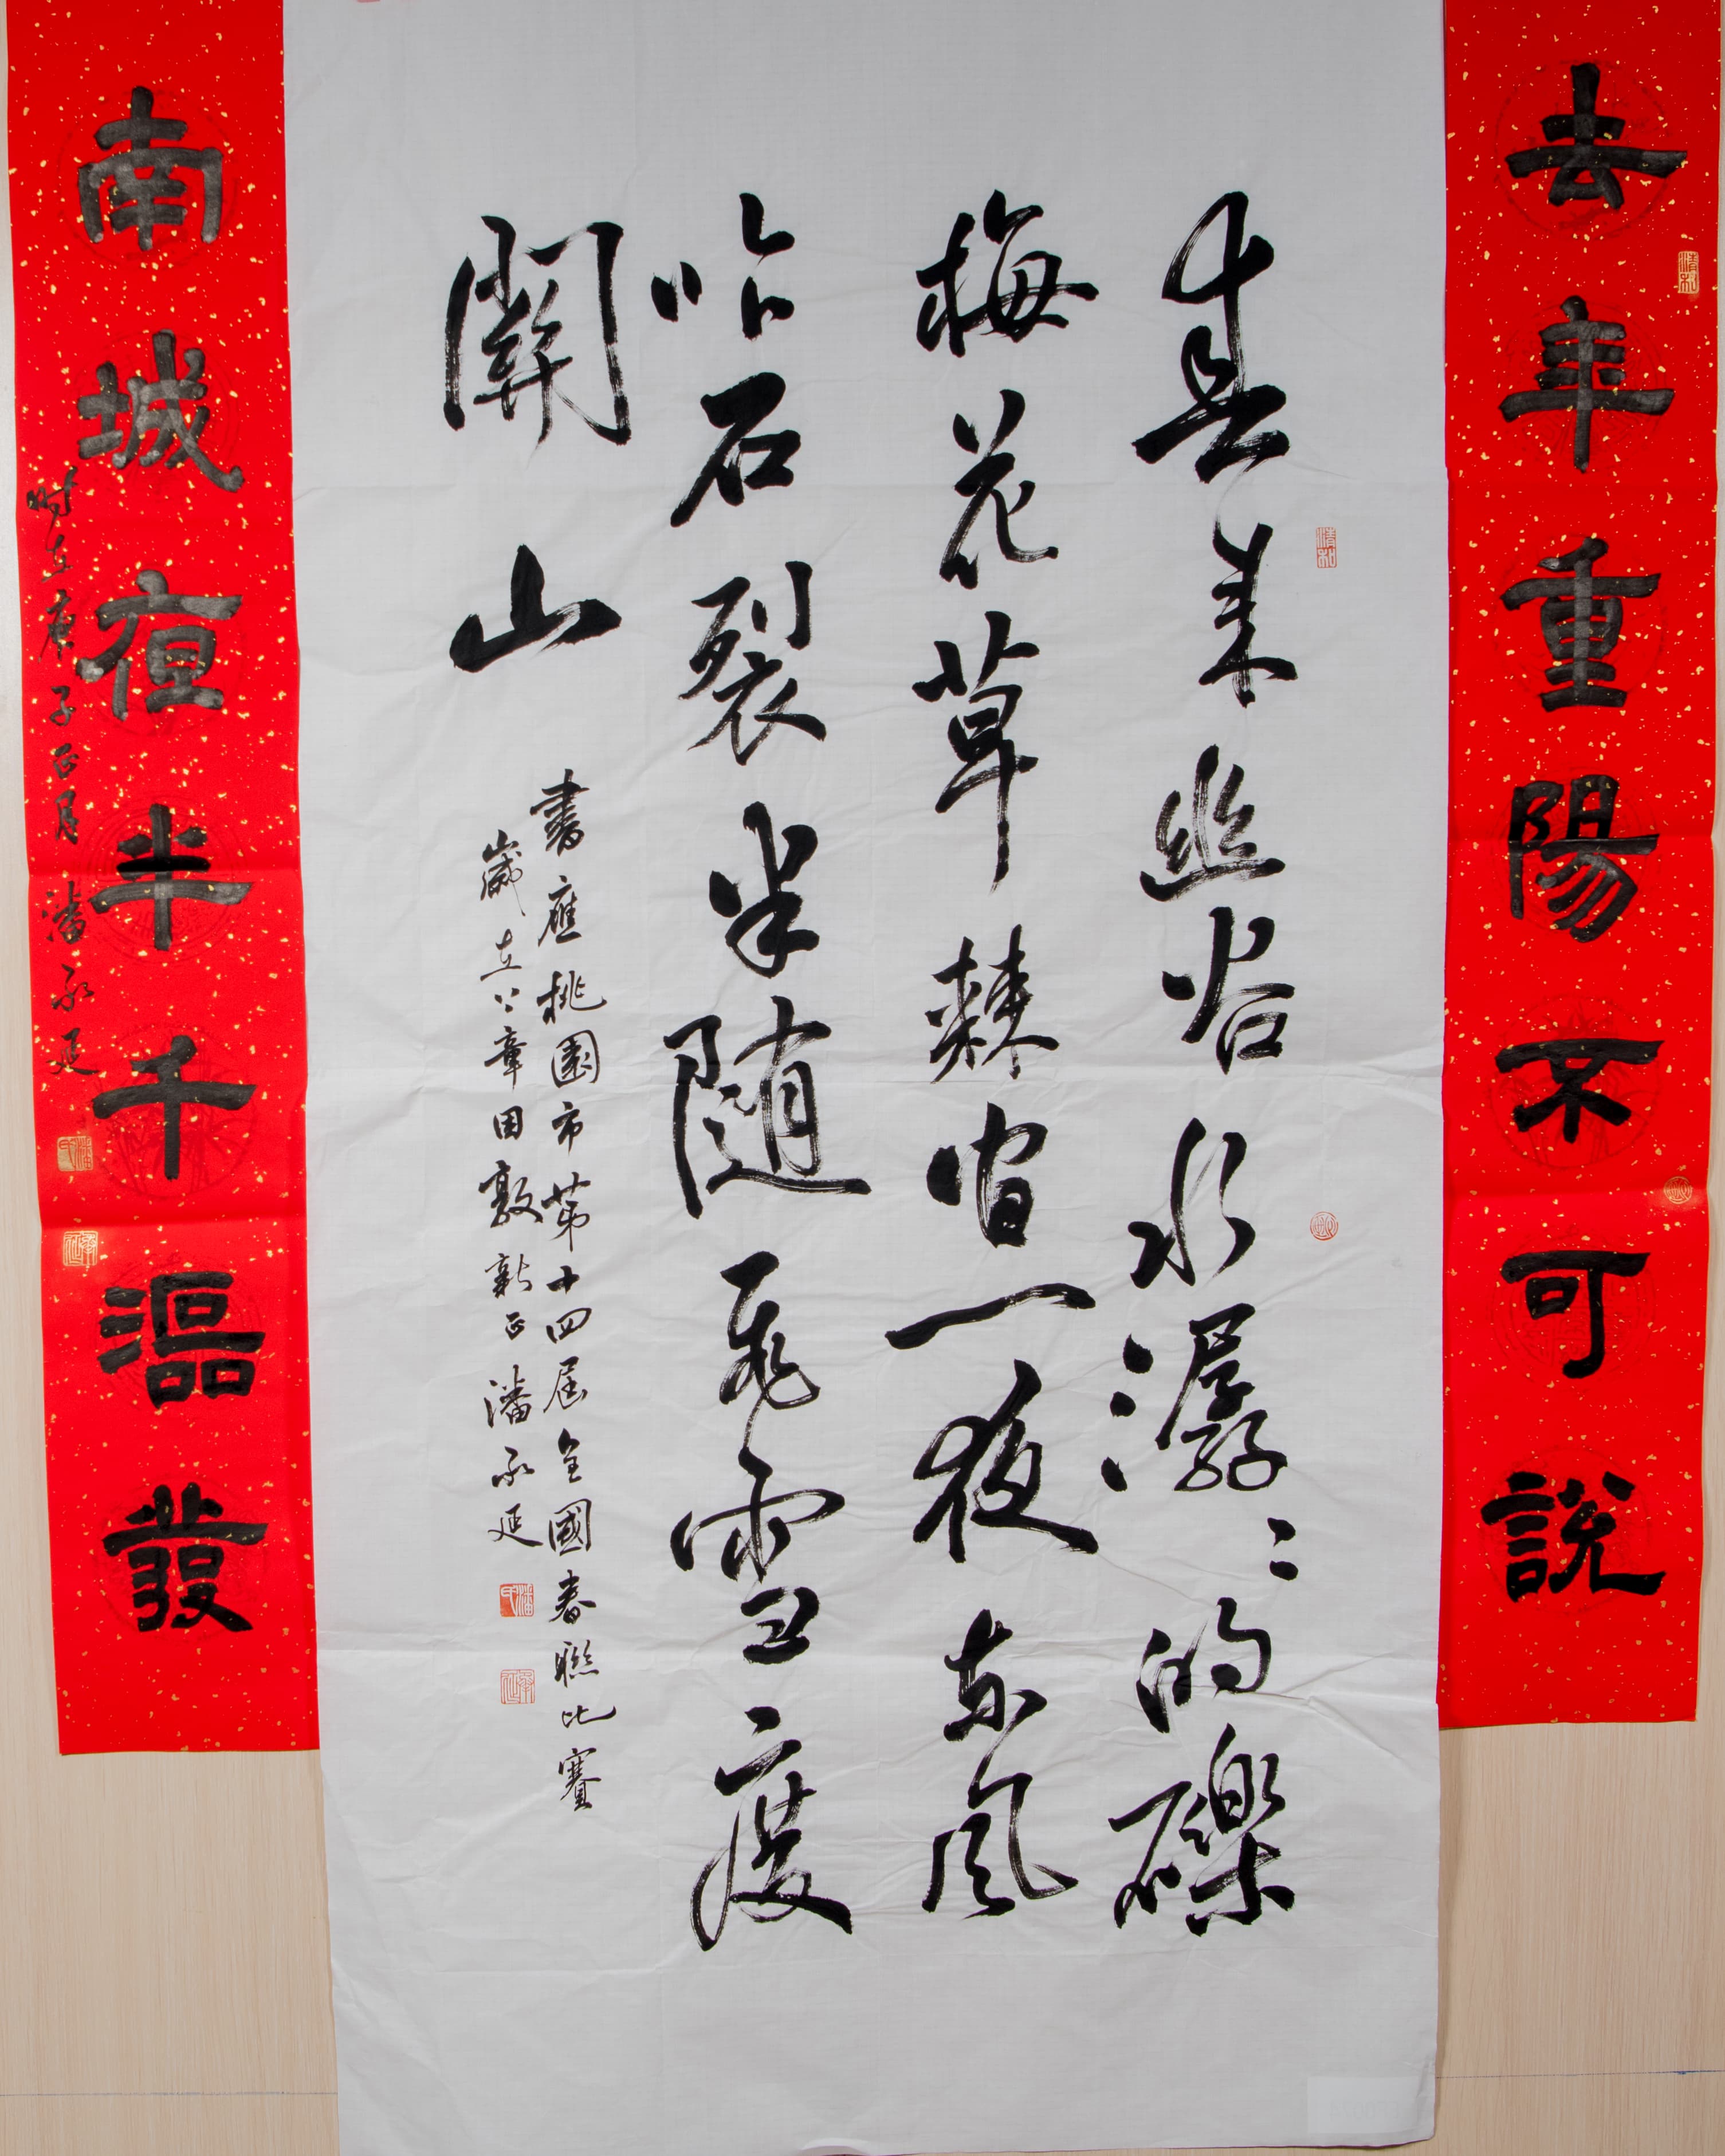 去年重陽不可說
清和
春來幽谷水潺〻的礫
梅花草棘間一夜東風
吹石裂半隨飛雪度
關山
書應桃園市第十四屆全國春聯比賽
歲在上章困敦新正潘承延
承延
清和
南城夜半千漚發
時在庚子正月 潘承延
承延